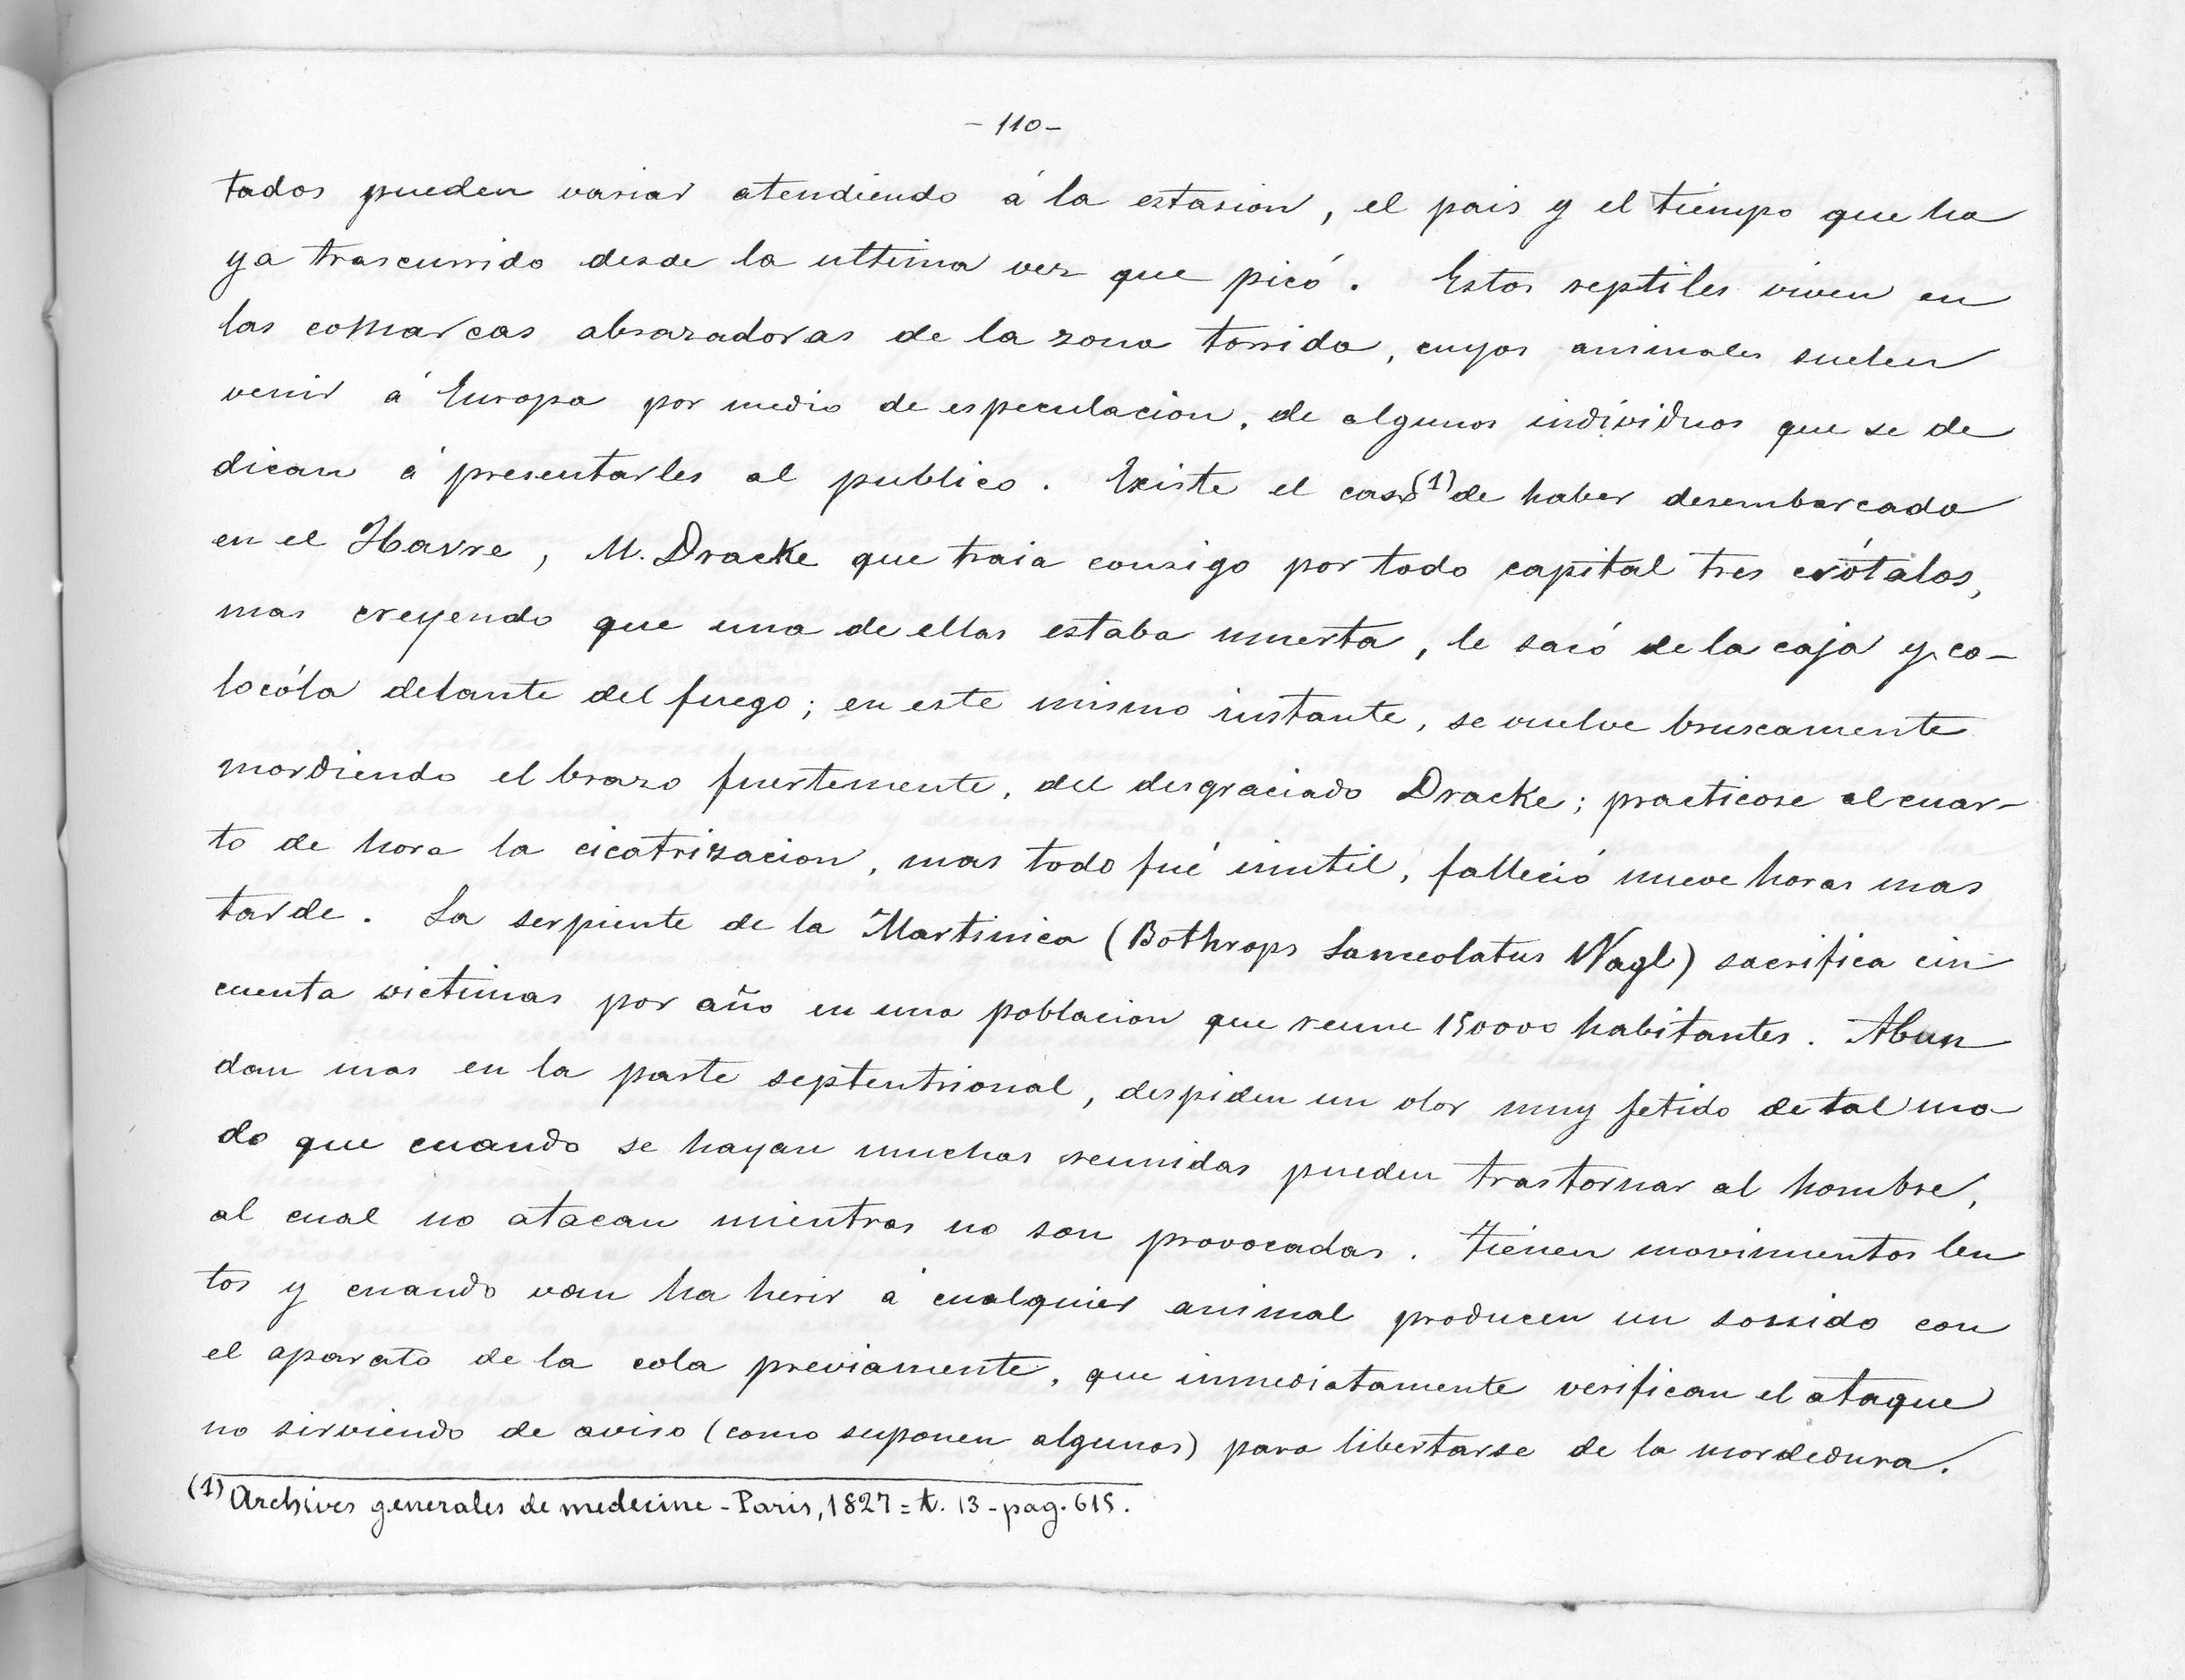 - 110 -
tados pueden variar atendiendo á la estasion, el pais y el tiempo que ha
ya trascurrido desde la ultima vez que picó. Estos reptiles viven en
las comarcas abrazadoras de la zona torrida, cuyos animales suelen
venir á Europa por medio de especulacion, de algunos individuos que se de
dican á presentarles al publico. Existe el caso (1) de haber desembarcado
en el Havre, M. Dracke que traia consigo por todo capital tres crótalos,
mas creyendo que una de ellas estaba muerta, le sacó de la caja y co-
locóla delante del fuego; en este mismo instante, se vuelve bruscamente
mordiendo el brazo fuertemente, del desgraciado Dracke; practicose al cuar-
to de hora la cicatrizacion, mas todo fué inutil, falleció nueve horas mas
tarde. La serpiente de la Martinica (Bothrops Lanceolatus Wagl) sacrifica cin
cuenta victimas por año en una poblacion que reune 150000 habitantes. Abun
dan mas en la parte septentrional, despiden un olor muy fetido de tal mo
do que cuando se hayan muchas reunidas pueden trastornar al hombre,
al cual no atacan mientras no son provocadas. Tienen movimientos len
tos y cuando van ha herir á cualquier animal producen un sonido con
el aparato de la cola previamente, que inmediatamente verifican el ataque
no sirviendo de aviso (como suponen algunos) para libertarse de la mordedura.
(1) Archives generales de medecine - Paris, 1827 = t. 13 - pag. 615.